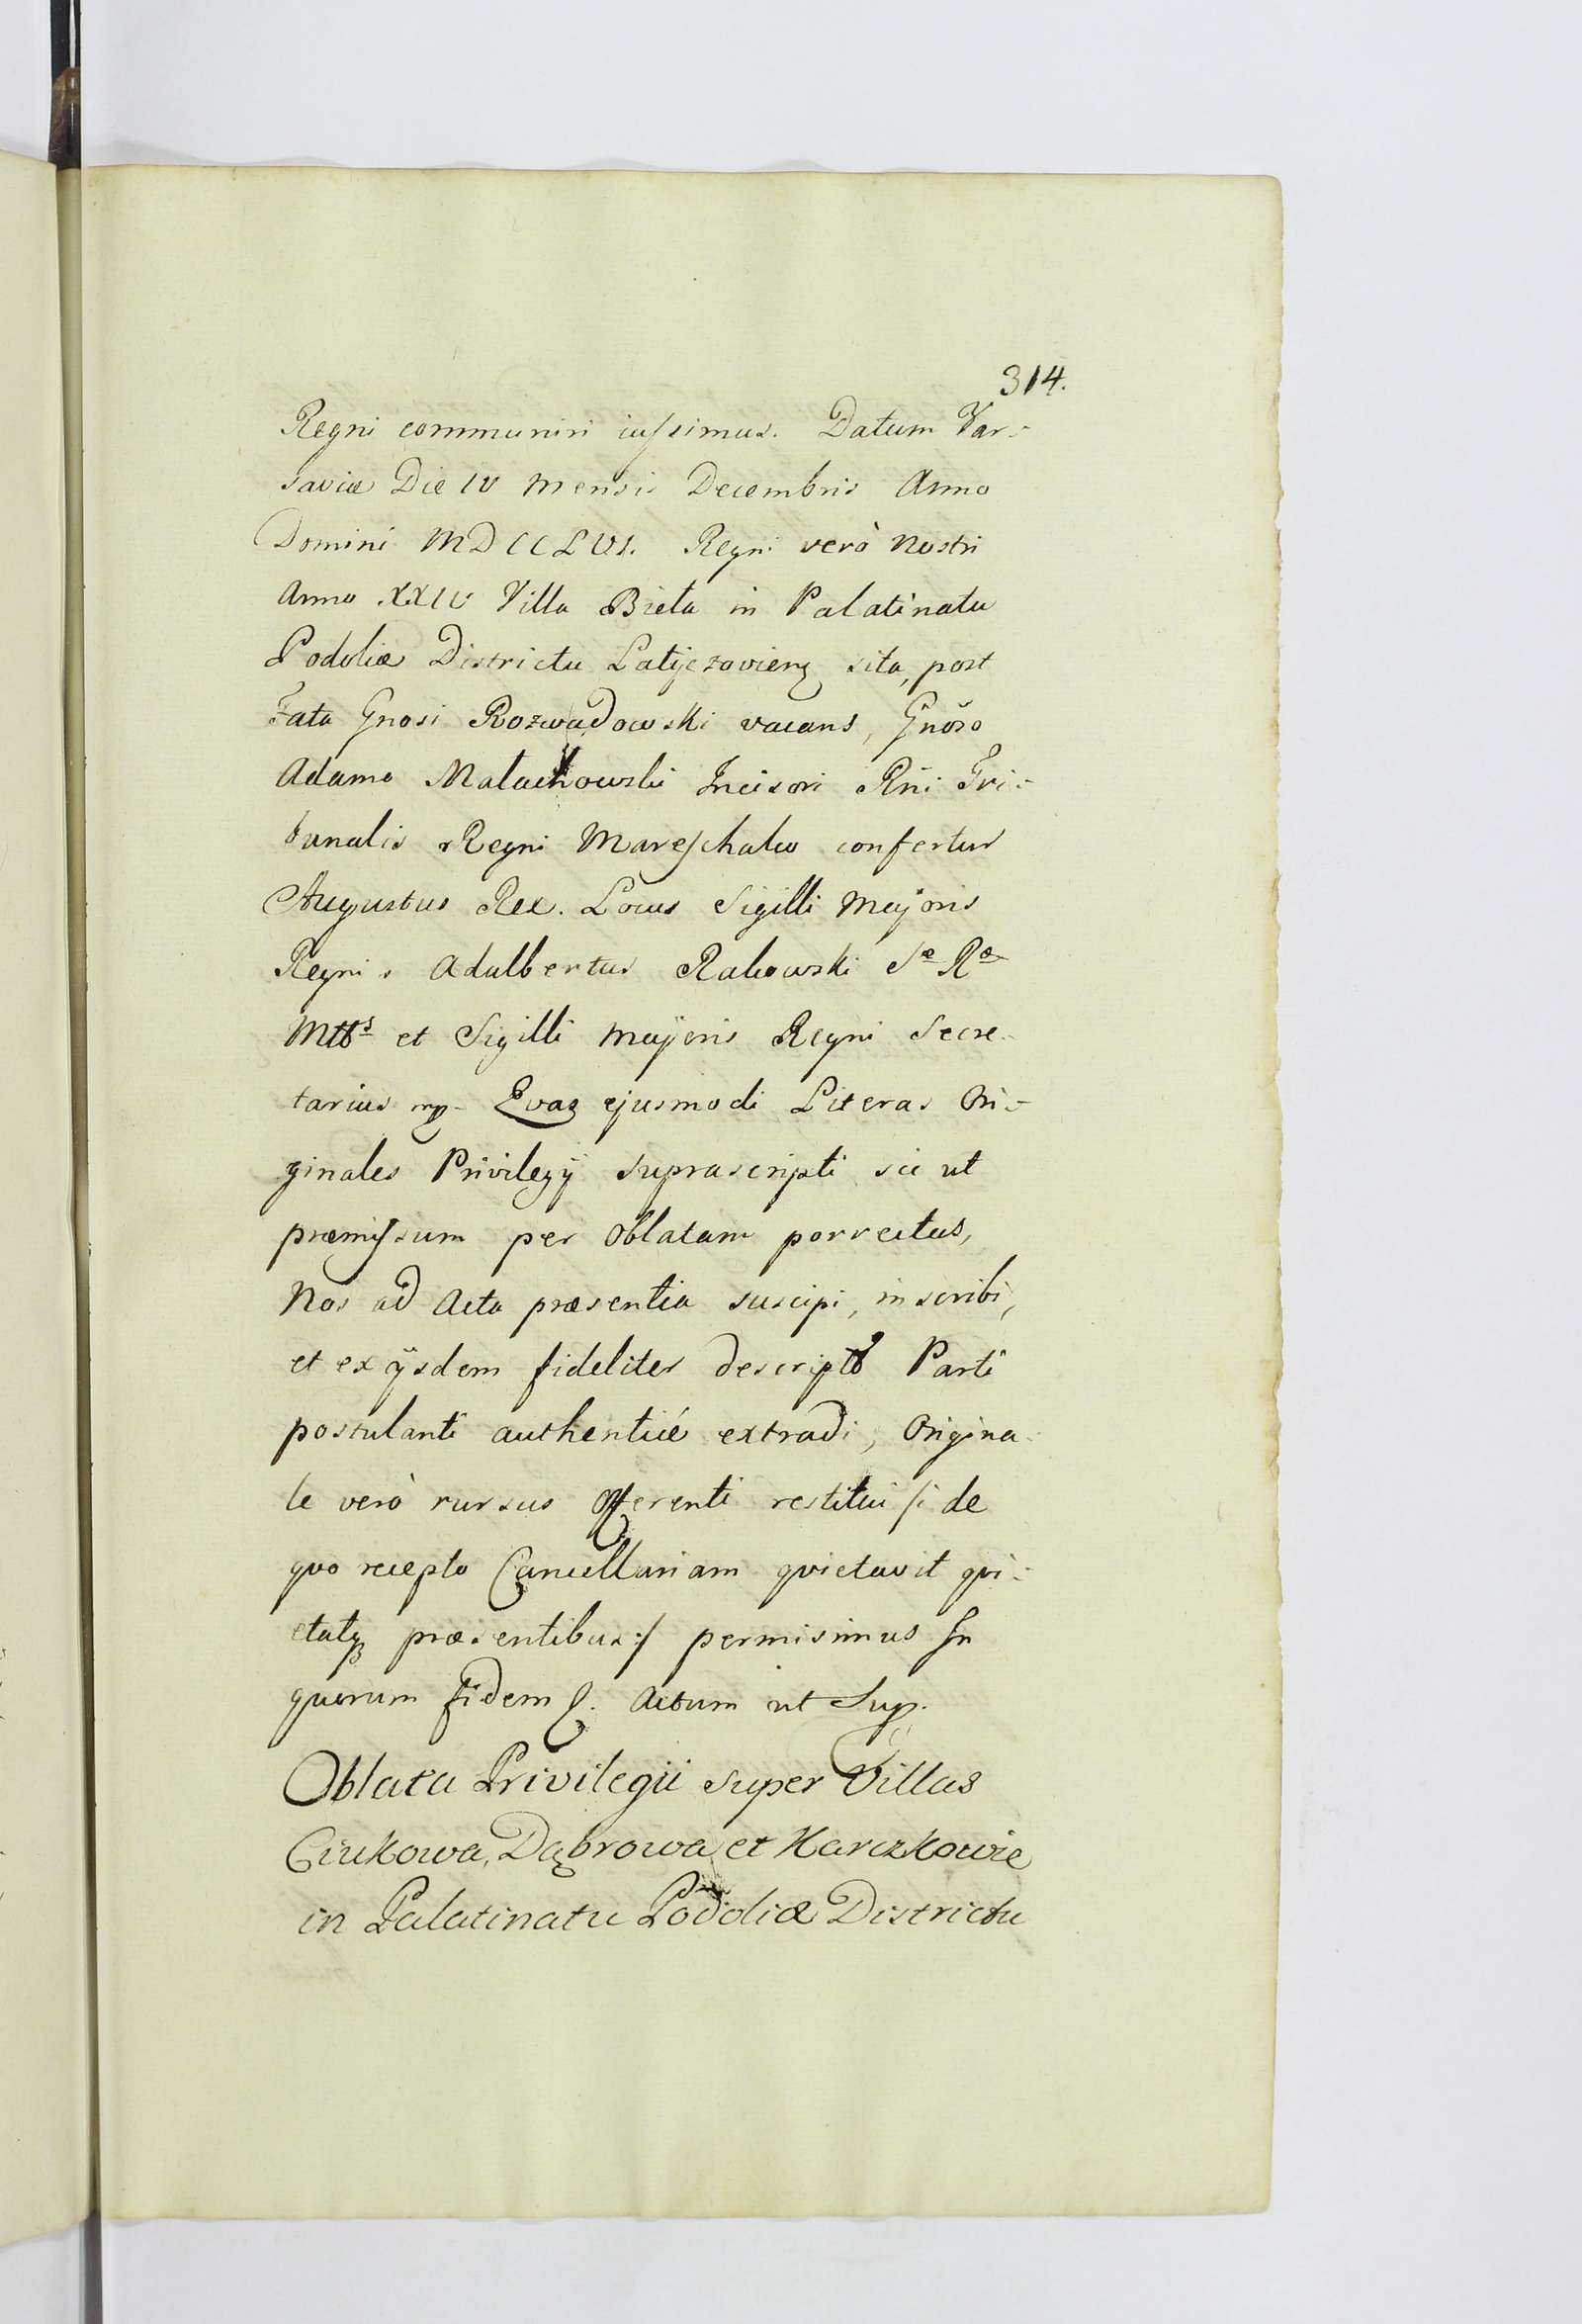 314.
Regni communiri iussimus. Datum Var-
saviæ Die IV Mensis Decembris Anno
Domini MDCCLVI. Regni verò Nostri
Anno XXIV Villa Bieła in Palatinatu
Podoliæ Districtu Latyczovieng sita, post
Fata Gnosi Rozwadowski vacans, Gnõso
Adamo Małachowski Incisori Rñi Tri-
bunalis Regni Mareschalco confertur
Augustus Rex. Locus Sigilli Majoris
Regni. Adalbertus Rakowski Sæ Ræ
Mttis et Sigilli Majoris Regni Secre-
tarius mp. Quaz ejusmodi Literas Ori-
ginales Privilegÿ Suprascripti sic ut
præmissum per Oblatam porrectas,
Nos ad Acta præsentia suscipi, inscribi,
et ex ÿsdem fideliter descripto Parti
postulanti authenticé extradi, Origina-
le verò rursus Offerenti restitui /: de
quo recepto Cancellariam quietavit qui-
etatq præsentibus :/ permisimus In
quorum fidem &. Actum ut Sup.
Oblata Privilegii super Villas
Ciukowa, Dąbrowa et Karczkowie
in Palatinatu Podoliæ Districtu